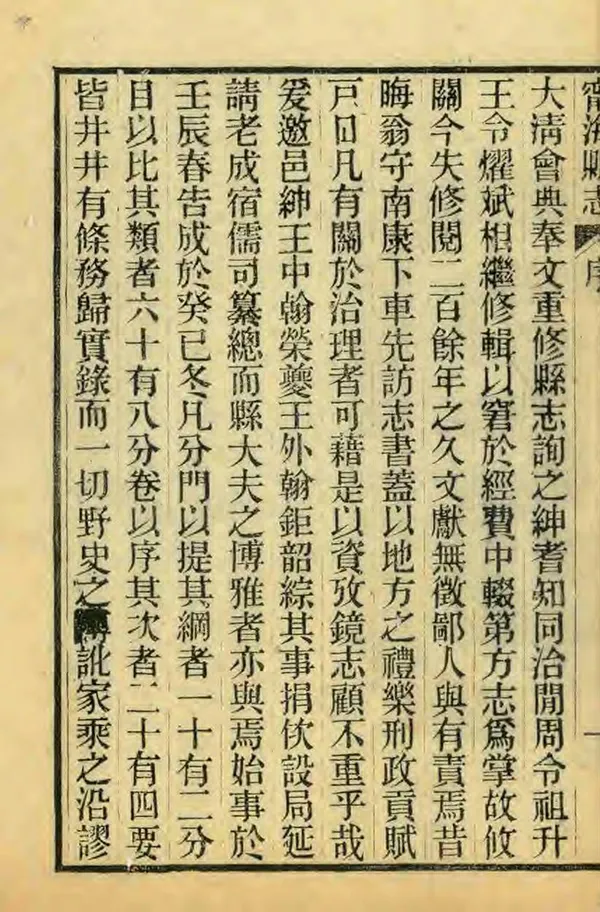 寧海縣志 序
大淸會典奉文重修縣志詢之紳耆知同治閒周令祖升
王令燿斌相繼修輯以窘於經費中輟第方志爲掌故攸
關今失修閱二百餘年之久文獻無徵鄙人與有責焉昔
晦翁守南康下車先訪志書蓋以地方之禮樂刑政貢賦
戸口凡有關於治理者可藉是以資攷鏡志顧不重乎哉
爰邀邑紳王中翰榮夔王外翰鉅韶綜其事捐欵設局延
請老成宿儒司纂總而縣大夫之博雅者亦與焉始事於
壬辰春告成於癸巳冬凡分門以提其綱者一十有二分
目以比其類者六十有八分卷以序其次者二十有四要
皆井井有條務歸實錄而一切野史之訛家乘之沿謬